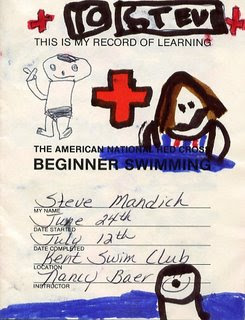 TO STEVE
THIS IS MY RECORD OF LEARNING
THE AMERICAN NATIONAL RED CROSS
BEGINNER SWIMMING
Steve Mandich
MY NAME
June 24th
DATE STARTED
July 12th
DATE COMPLETED
Kent Swim Club
LOCATION
Nancy Baer
INSTRUCTOR